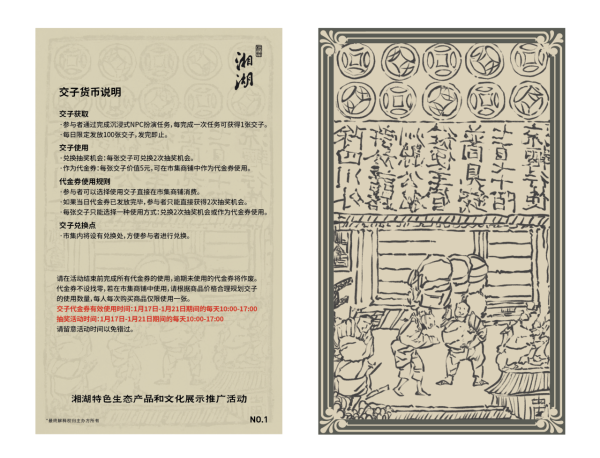 湘湖
交子货币说明
交子获取
·参与者通过完成沉浸式NPC扮演任务,每完成一次任务可获得1张交子。
·每日限定发放100张交子,发完即止。
交子使用
·兑换抽奖机会:每张交子可兑换2次抽奖机会。
·作为代金券:每张交子价值5元,可在市集商铺中作为代金券使用。
代金券使用规则
·参与者可以选择使用交子直接在市集商铺消费。
·如果当日代金券已发放完毕,参与者只能直接获得2次抽奖机会。
·每张交子只能选择一种使用方式:兑换2次抽奖机会或作为代金券使用。
交子兑换点
·市集内将设有兑换处,方便参与者进行兑换。
请在活动结束前完成所有代金券的使用,逾期未使用的代金券将作废。
代金券不设找零,若在市集商铺中使用,请根据商品价格合理规划交子
的使用数量,每人每次购买商品仅限使用一张。
交子代金券有效使用时间:1月17日-1月21日期间的每天10:00-17:00
抽奖活动时间:1月17日-1月21日期间的每天10:00-17:00
请留意活动时间以免错过。
湘湖特色生态产品和文化展示推广活动
*最终解释权归主办方所有
NO.1